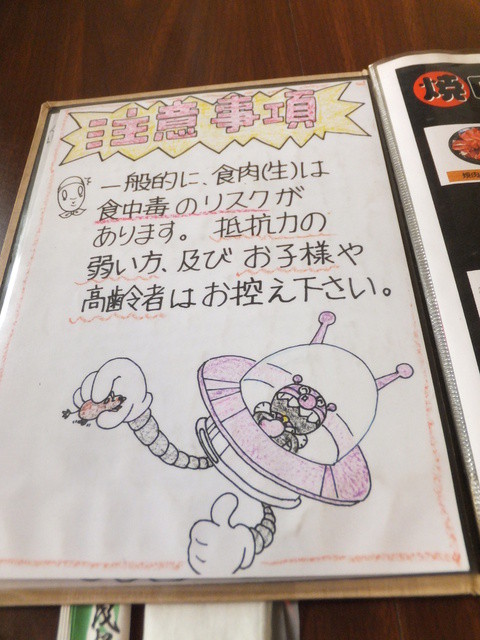 注意事項
一般的に、食肉(生)は
食中毒のリスクが
あります。抵抗力の
弱い方、及びお子様や
高齢者はお控え下さい。
焼
焼肉